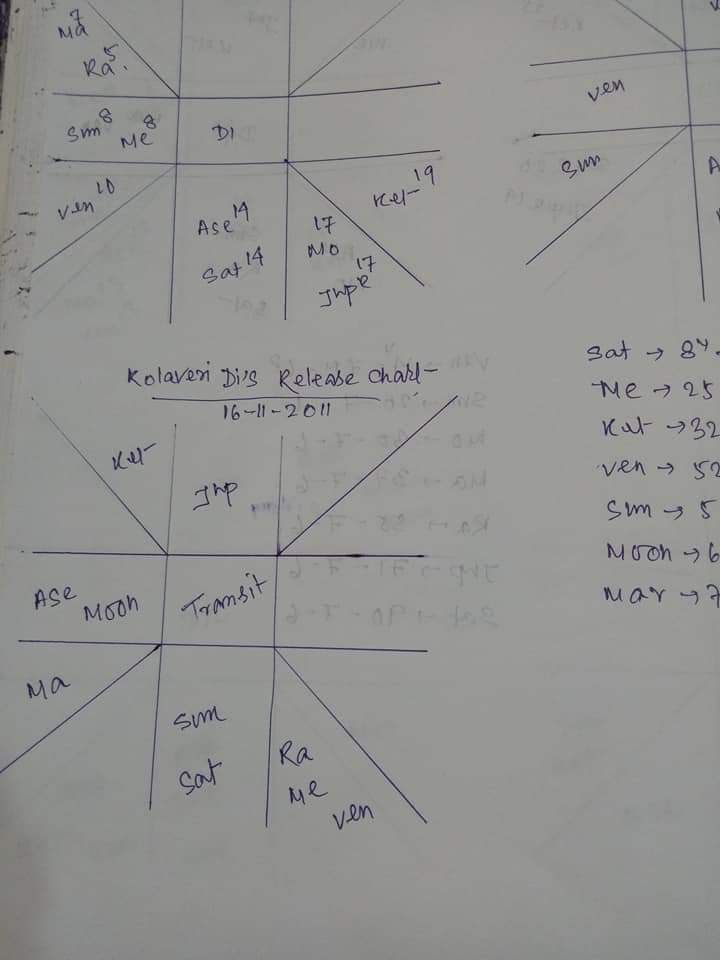 Ma 7
Ra 5.
Sun 8 Me 8
D1
Ven 10
Asc 14
Sat 14
17
Mo
17
Jup R
Ket 19
Ven
Sun
A
Kolaveri Di's Release Chart
16-11-2011
Ket
Jup
Asc
Moon
Transit
Ma
Sun
Sat
Ra
Me
Ven
Sat → 84
Me → 25
Ket → 32
Ven → 52
Sun → 5
Moon → 6
Mar → 7